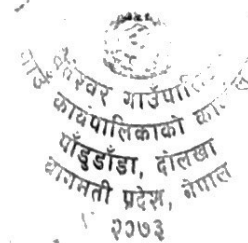 वैतेश्वर गाउँपालिका
गाउँ कार्यपालिकाको कार्यालय
पाँडुडाँडा, दोलखा
वागमती प्रदेश, नेपाल
२०७३